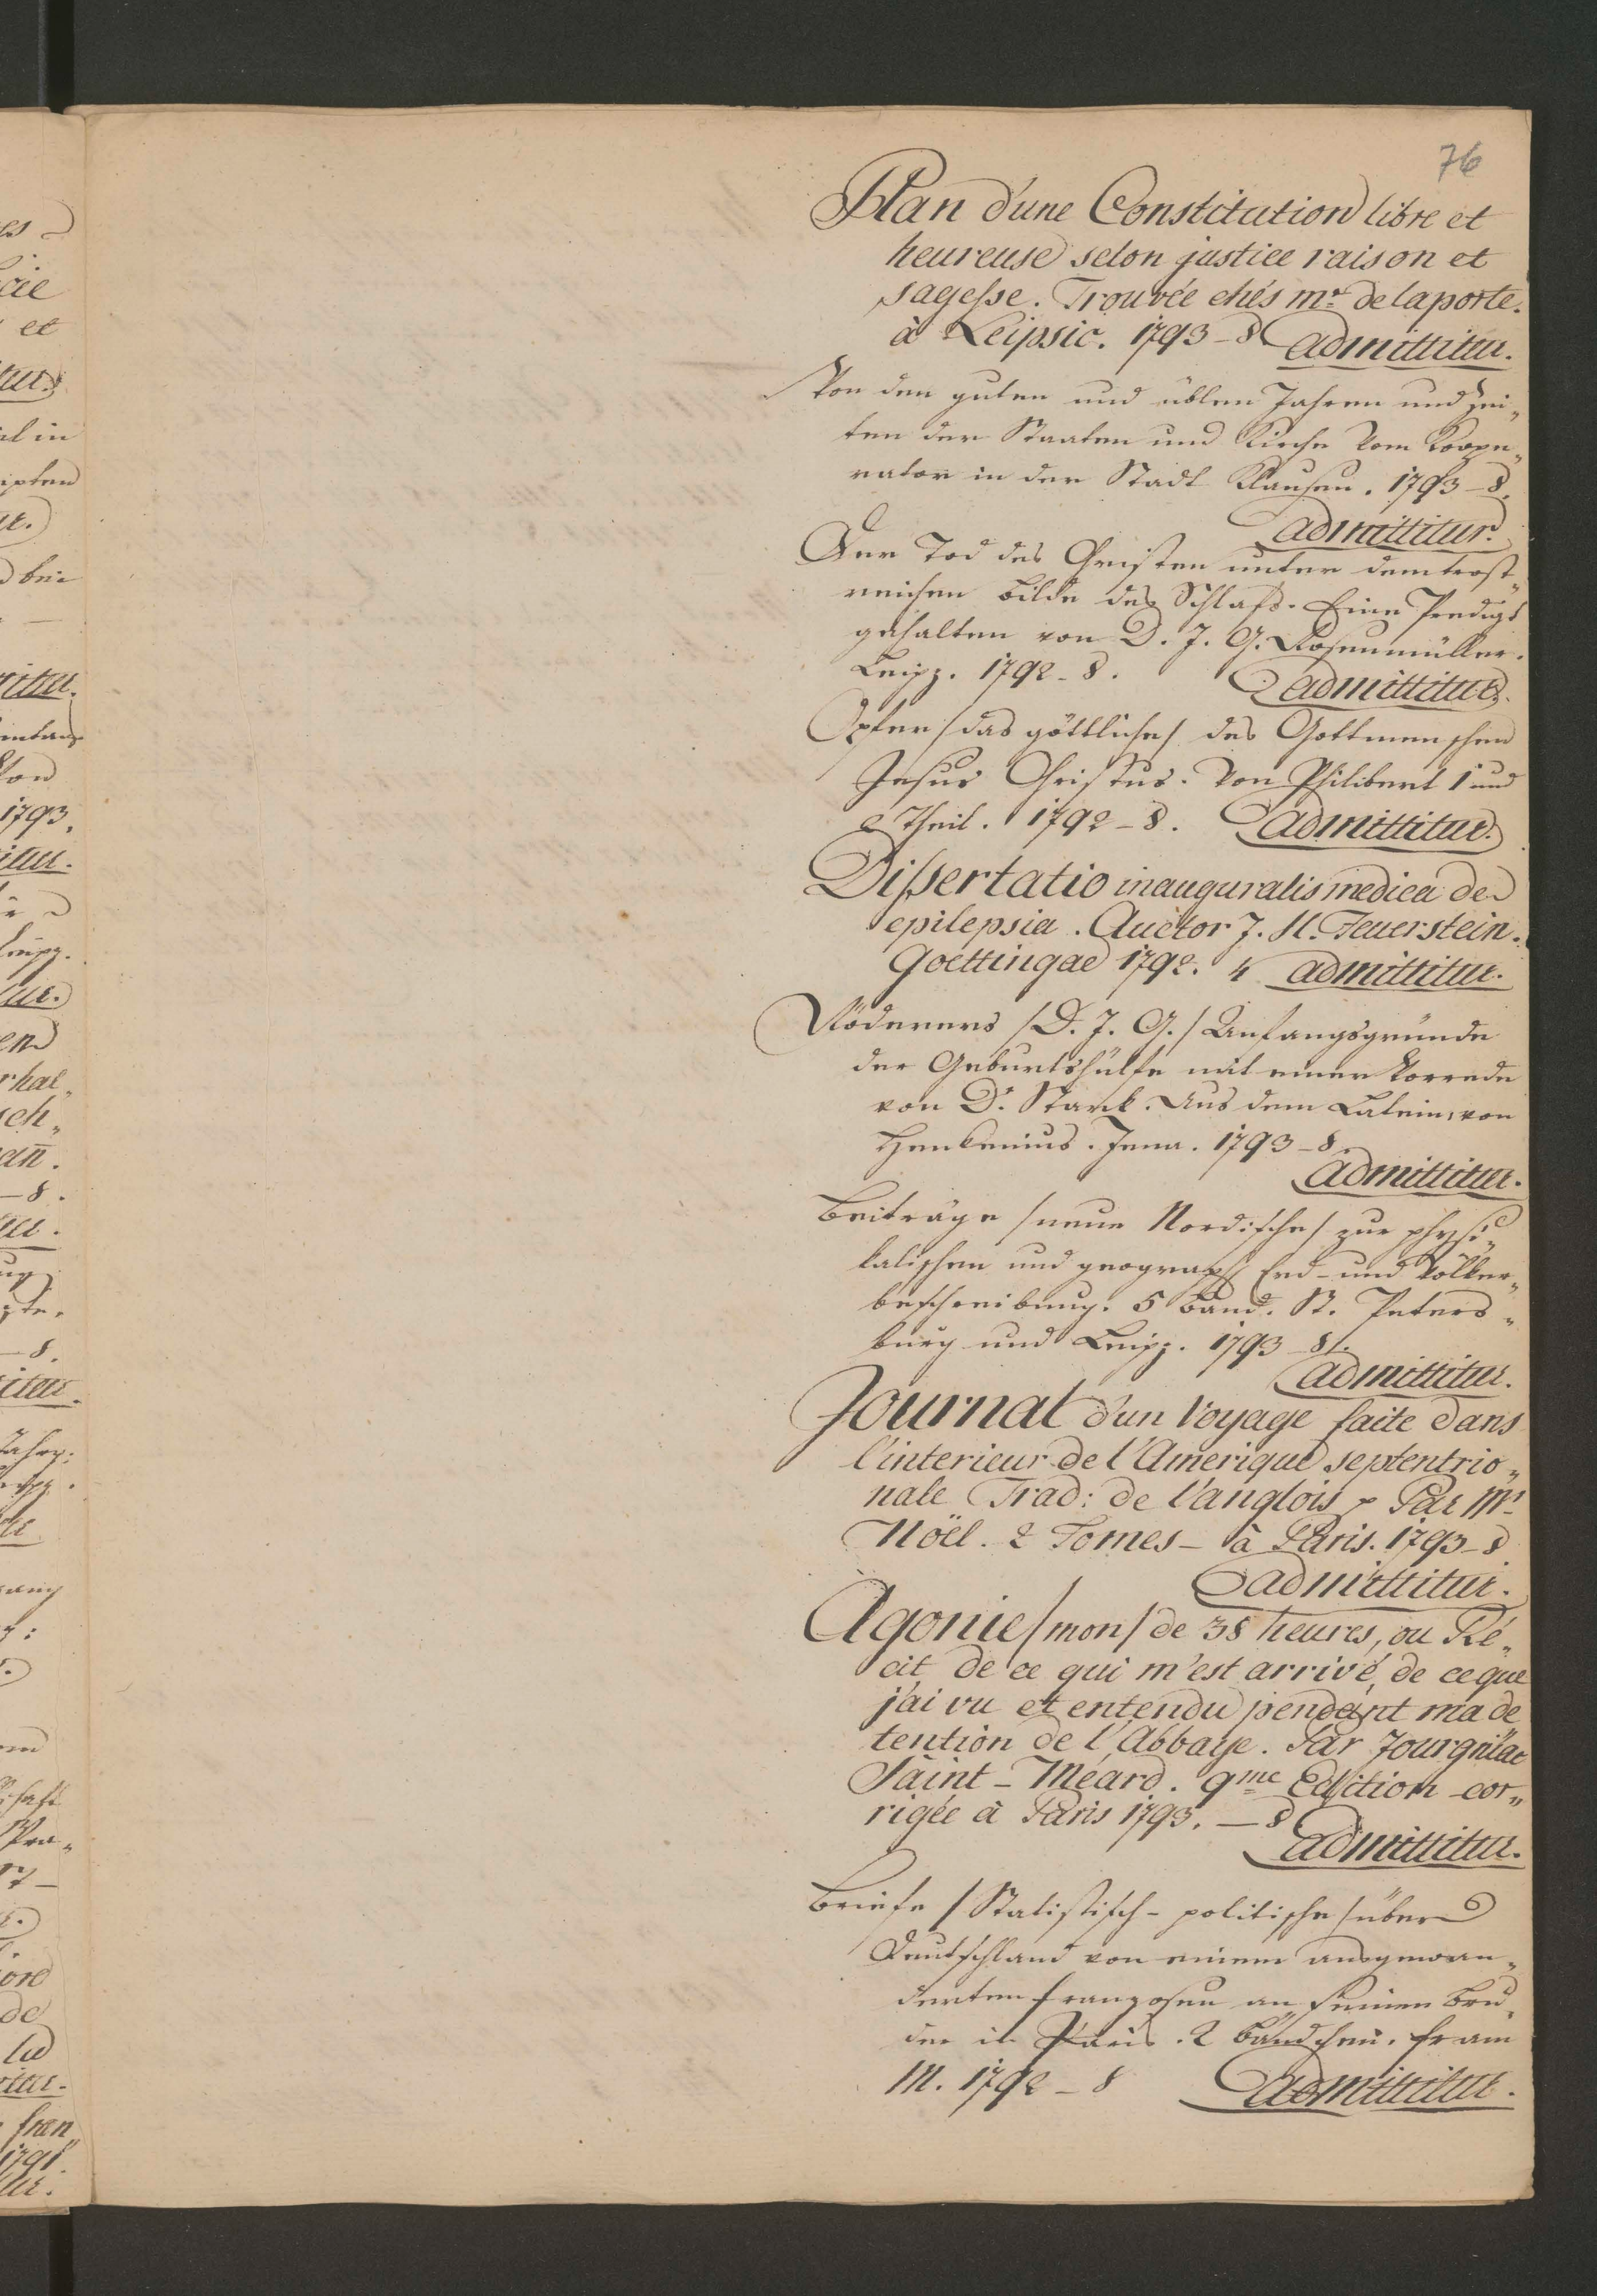 76
Plan d'une Constitution libre et
heureuse selon justice raison et
sagesse. Trouvée chés mr. de laporte.
à Leipsic. 1793 - 8 admittitur.
Von den guten und üblen Jahren und Zei„
ten der Staaten und Kirche vom Koope„
rator in der Stadt Klausen. 1793 - 8.
admittitur.
Der Tod des Christen unter dem trost„
reichen Bilde des Schlafs. Eine Predigt
gehalten von D. J. G. Rosenmüller.
Leipz. 1792 - 8. admittitur.
Opfer /das göttliche/ des Gottmenschen
Jesus Christus. Von Philibert 1 und
2 Theil. 1792 - 8. admittitur.
Dissertatio inauguralis medica de
epilepsia. Auctor J. H. Feuerstein.
Goettingae 1792. 4 admittitur.
Röderers /D. J. G./ Anfangsgründe
der Geburtshülfe mit einer Vorrede
von Dr. Stark. Aus dem Latein. von
Henkenius. Jena. 1793 - 8.
admittitur.
Beiträge /neue Nordische/ zur physi„
kalischen und geograph Erd- und Völker„
beschreibung. 5 Band. St. Peters„
burg und Leipz. 1793 - 8.
admittitur.
Journal d'un Voyage faite dans
l'interieur de l'Amerique septentrio„
nale Trad: de l'anglois p Par Mr
Nöel. 2 Tomes - à Paris. 1793 - 8
admittitur.
Agonie /mon/ de 38 heures, ou Ré„
cit de ce qui m'est arrivé, de ce que
j'ai vu et entendu pendant ma de
tention de l'Abbaye. Par Jourgniac
Saint - Méard. 9me Edition cor„
rigée à Paris 1793. - 8
admittitur.
Briefe /Statistisch - politische/ über
Deutschland von einem ausgewan„
derten Franzosen an seinen Bru„
der in Paris. 2 Bändchen. Fr am
M. 1792 - 8 admittitur.